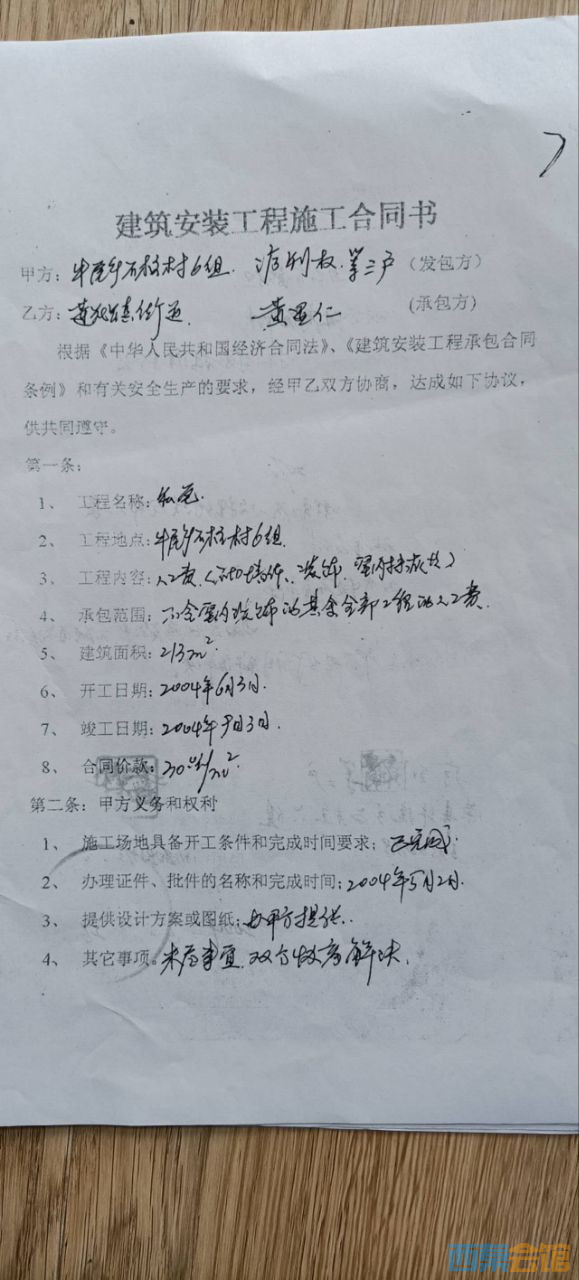 建筑安装工程施工合同书
甲方：牛尾乡石柱村6组. 等三户（发包方）
乙方： 黄显仁 （承包方）
根据《中华人民共和国经济合同法》、《建筑安装工程承包合同
条例》和有关安全生产的要求，经甲乙双方协商，达成如下协议，
供共同遵守。
第一条：
1、 工程名称：
2、 工程地点：牛尾乡石柱村6组.
3、 工程内容：人工费
4、 承包范围：不含室内装饰的其余全部工程的人工费.
5、 建筑面积：213m².
6、 开工日期：2004年6月3日.
7、 竣工日期：2004年9月3日.
8、 合同价款：30元/m²
第二条：甲方义务和权利
1、 施工场地具备开工条件和完成时间要求：已完成.
2、 办理证件、批件的名称和完成时间：2004年5月2日.
3、 提供设计方案或图纸：由甲方提供.
4、 其它事项。未尽事宜.双方协商解决.
西祠会馆